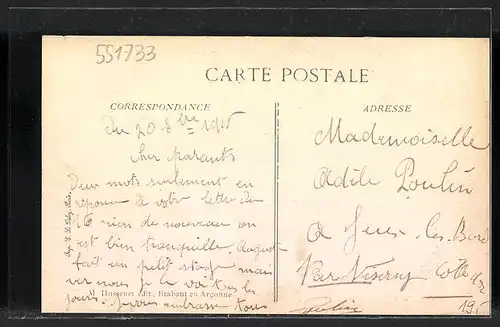 551733
CARTE POSTALE
CORRESPONDANCE
ADRESSE
Du 20 8bre 1915
Cher parants
Deux mots seulement en
réponse à votre lettre du
16 rien de nouveau on
est bien tranquille. August
fait un petit stage mais
ver nous je le voi tres les
jours. embrasse tous
M. Husson, édit., Brabant en Argonne
Mademoiselle
Adèle Poulin
a Jeux-les-Bard
Par
Côte d'or